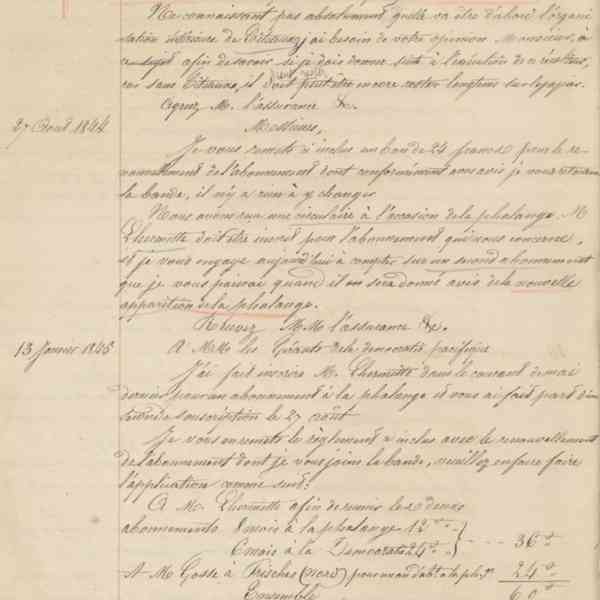 Ne connaissant pas absolument quelle va être d'abord l'organi
sation intérieure de Citeaux, j'ai besoin de votre opinion Monsieur, à
ce sujet afin de savoir si je dois donner suite à l'exécution de
car sans Citeaux, il doit peut être encore rester longtems sur le papier.
Agréez M. l'assurance &c.
27 Aout 1844
Messieurs,
Je vous remets ci inclus un bon de 24 francs pour le re-
nouvellement de l'abonnement dont conformément à vos avis je vous retourne
la bande, il n'y a rien à y changer
Nous avons reçu une circulaire à l'occasion de la phalange. M
Lhermitte doit être inscrit pour l'abonnement qui nous concerne,
et je vous engage aujourd'hui à compter sur un second abonnement
que je vous paierai quand il me sera donné avis de la nouvelle
apparition de la phalange.
Recevez M.M. l'assurance &c.
13 Janvier 1845
A MrMrs les Gérants de la democratie pacifique
J'ai fait inscrire M. Lhermitte dans le courant de mai
dernier pour un abonnement à la phalange et vous ai fait part d'une
seconde souscription le 27 août
Je vous en remets le règlement ci inclus avec le renouvellement
de l'abonnement dont je vous joins la bande, veuillez en faire faire
l'application comme suit:
A M. Lhermitte afin de réunir les deux
abonnements 8 mois à la phalange 12
6 mois à la Democratie 24 36
A M Gosse à Prisches (nord) pour un an d'abt. à la phge. 24
Ensemble 60